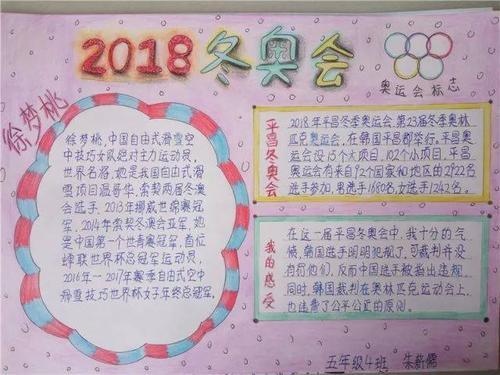 2018冬奥会
奥运会标志
徐梦桃
徐梦桃,中国自由式滑雪空
中技巧女队绝对主力运动员,
世界名将,她是我国自由式滑
雪项目温哥华,索契两届冬奥
会选手,2013年挪威世锦赛冠
军,2014年索契冬奥会亚军,她
是中国第一个世青赛冠军,首位
蝉联世界杯总冠军运动员,
2016年—2017年赛季自由式空中
滑雪技巧世界杯女子年终总冠军。
平昌冬奥会
2018年平昌冬季奥运会第23届冬季奥林
匹克奥运会,在韩国平昌郡举行。平昌奥
运会设15个大项目,102个小项目,平昌
奥运会有来自92个国家和地区的2922名
选手参加,男选手1680名,女选手1242名。
我的感受
在这一届平昌冬奥会中,我十分的气
愤,韩国选手明明犯规了,可裁判并没
有罚他们,反而中国选手被指出违规,
同时,韩国裁判在奥林匹克运动会上,
也违背了公平公正的原则。
五年级4班 朱新儒